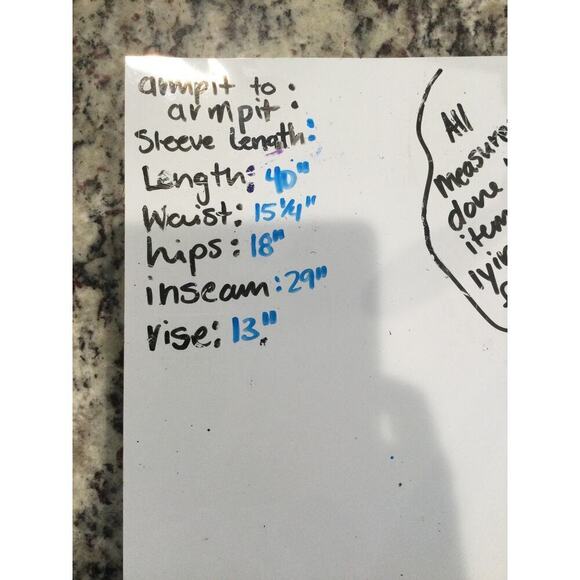 armpit to :
armpit
Sleeve Length:
Length: 40"
Waist: 15 1/4"
hips: 18"
inseam: 29"
rise: 13"
All
done